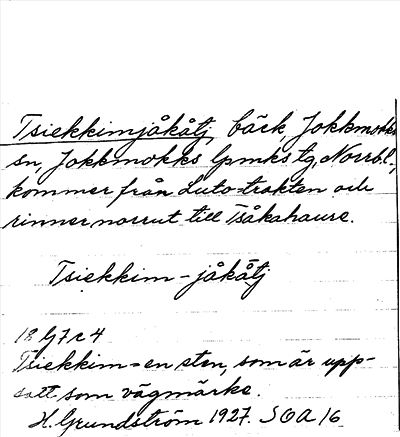 Tsiekkimjåkåtj, bäck, Jokkmokks
sn, Jokkmokks lpmks tg, Norrb.l.,
kommer från Luto-trakten och
rinner norrut till Tsåkahaure.
Tsiekkim-jåkåtj
18 G7c4
Tsiekkim = en sten, som är upp-
satt som vägmärke.
H. Grundström 1927. SOA 16